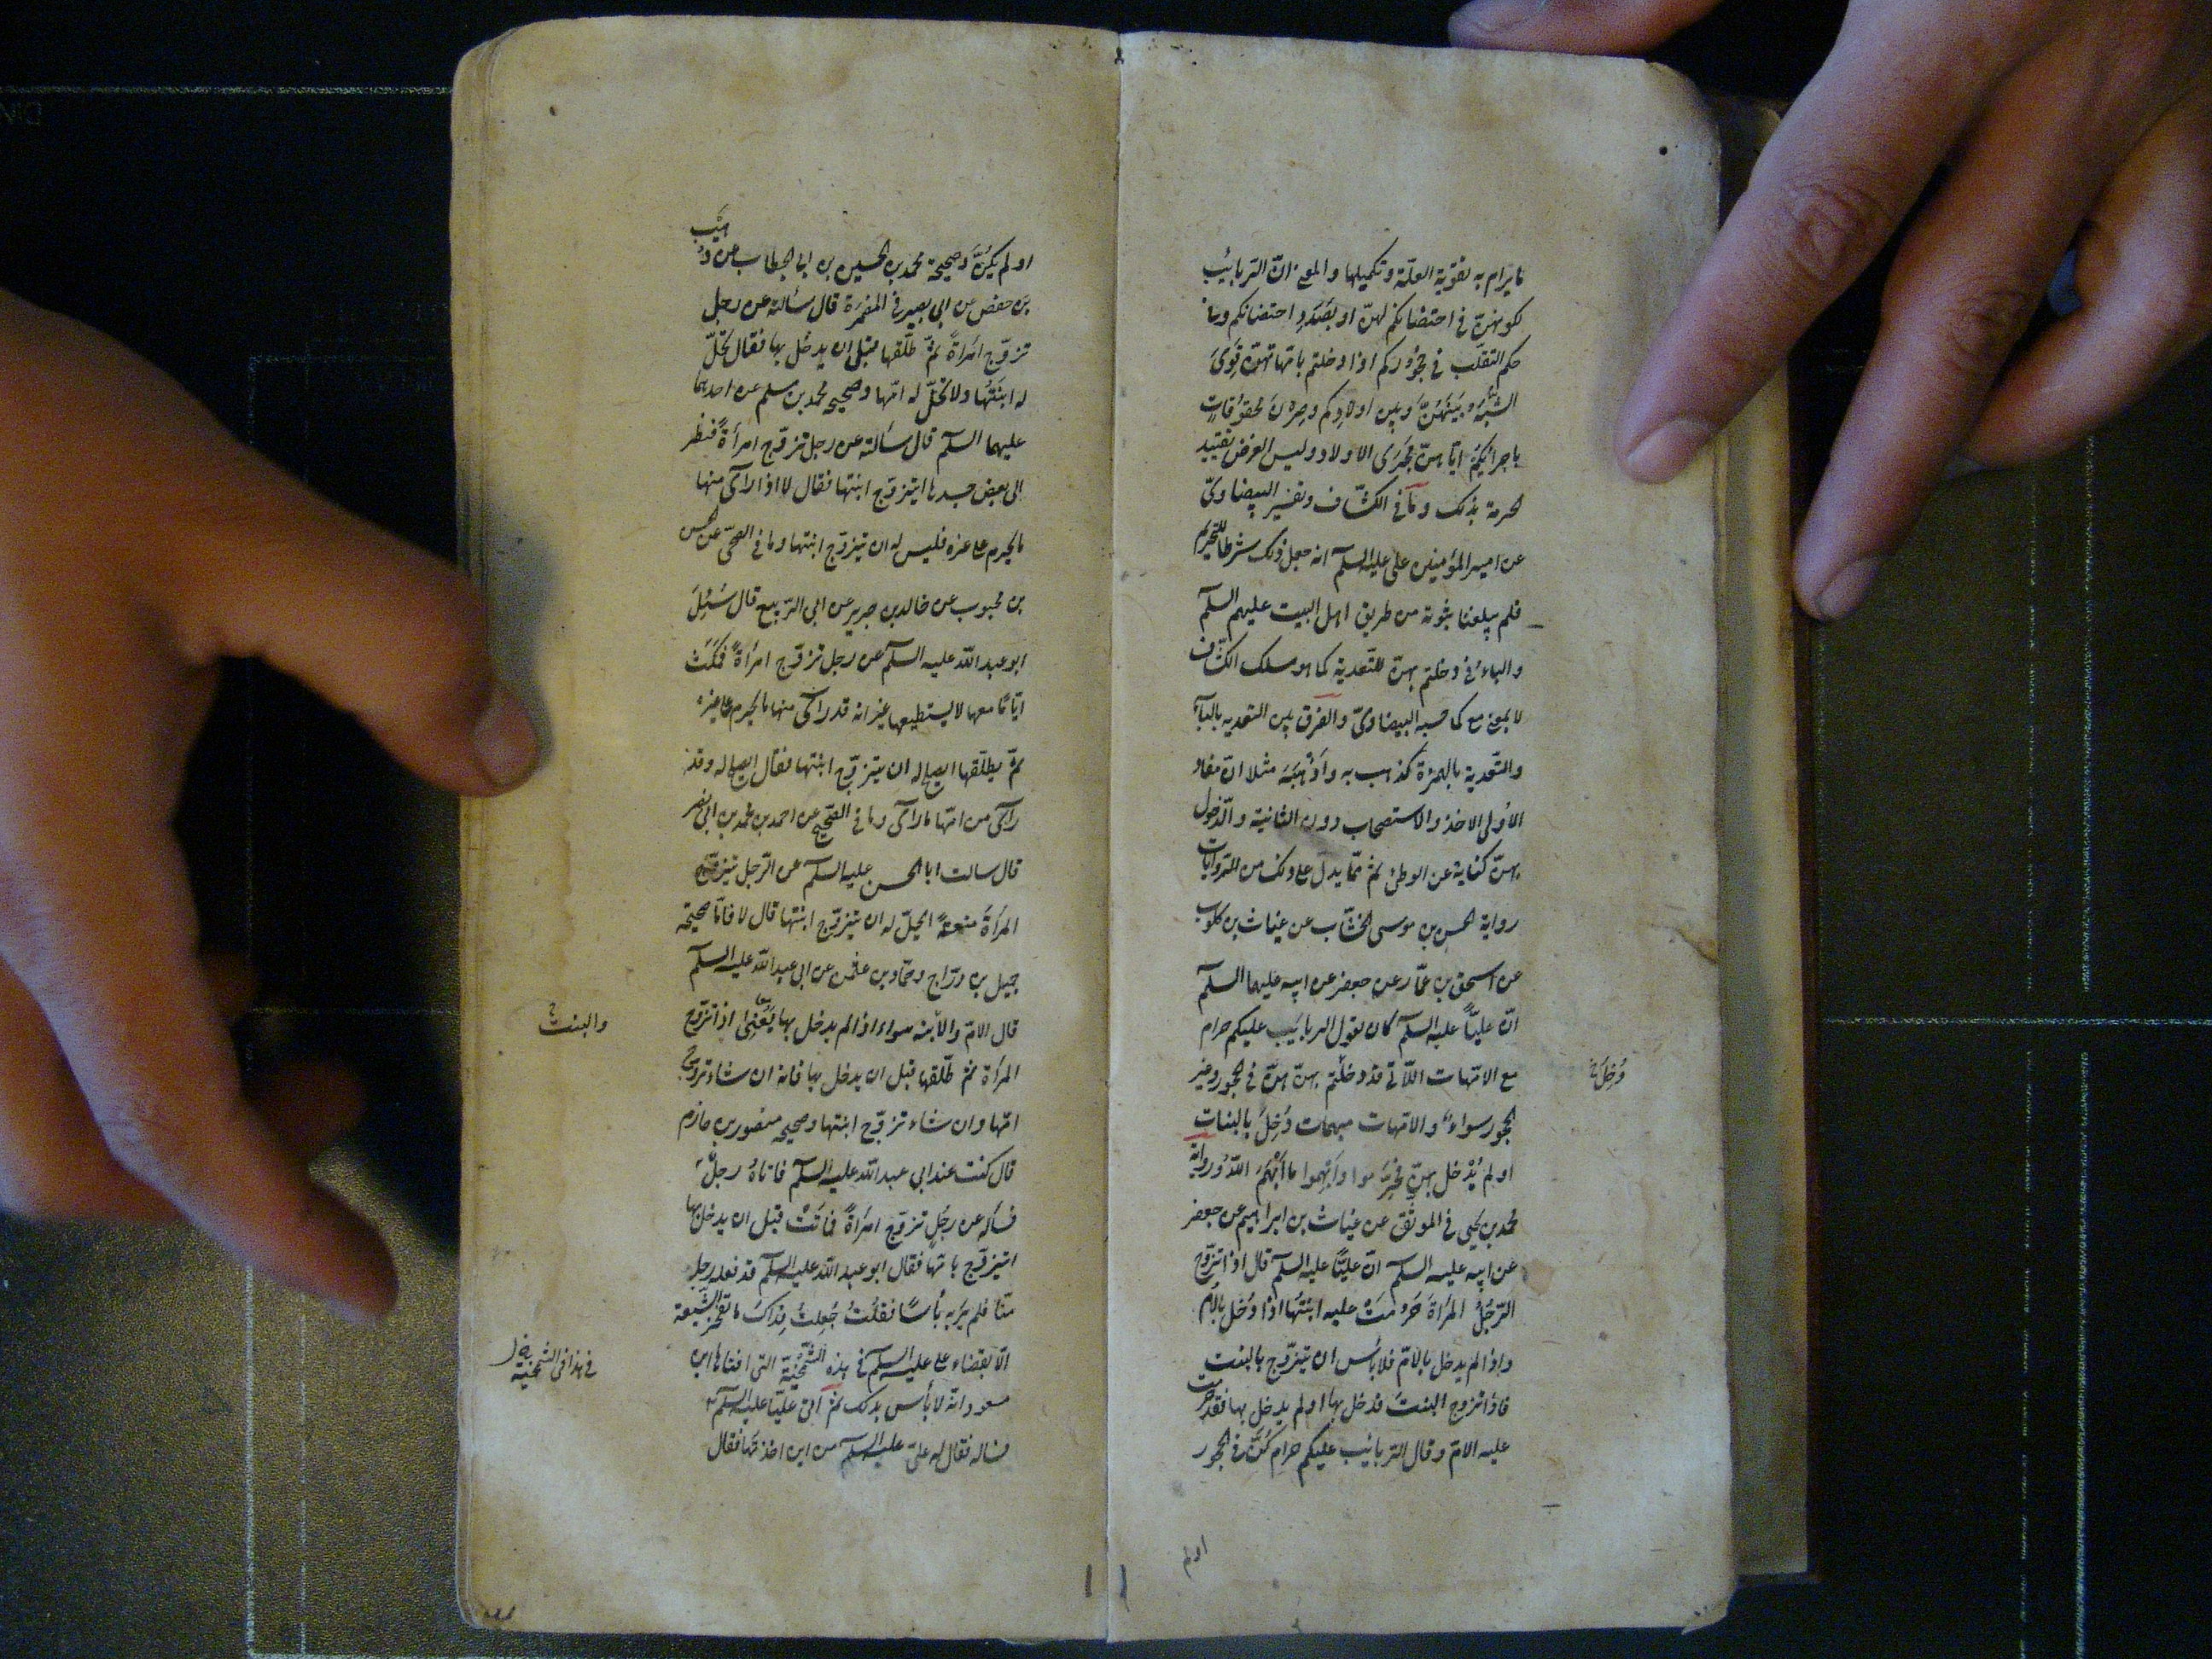 ما يرام به تقوية العلّة وتكميلها والمعنى انّ الربائب
لكونهنّ في احتضانكم لهنّ او بصَدَدِ احتضانكم وفي
حكم التقلّب في حجوركم اذا دخلتم بامّهاتهنّ قَوِىَ
الشبَهُ بينَهُنَّ وبين اولادِكم وصِرْنَ محقوقاتٍ
باجرائكم ايّاهنّ مُجرَى الاولاد وليس الغرض تقييد
الحرمة بذلك وما في الكشّاف وتفسير البيضاوىّ
عن امير المؤمنين على عليه السلم انه جعل ذلك شرطا للتحريم
فلم يبلغنا ثبوته من طريق اهل البيت عليهم السلم
والباء في دخلتم بهنّ للتّعدية كما هو مسلك الكشّاف
لا بمعنى مع كما حسبه البيضاوىّ والفرق بين التعدية بالباء
والتّعدية بالهمزة كذهب به واَذْهَبَهُ مثلا انّ مفاد
الاُولى الاخذ والاستصحاب دون الثانية والدّخول
بهنّ كناية عن الوطئ ثمّ ممّا يدلّ على ذلك من الروايات
رواية الحسن بن موسى الخشّاب عن غياث بن كلوب
عن اسحق بن عمّار عن جعفر عن ابيه عليهما السلم
انّ عليّاً عليه السلم كان يقول الربائب عليكم حرام
مع الامّهات اللّاتى قد دخلتم بهنّ هنّ في الحجور وغير
دُخِلَ خ
الحجور سواءٌ والامّهات مبهمات دُخِلَ بالبناتِ
او لم يُدْخل بهنّ فحَرِّموا واَبْهِموا ما اَبْهَمَ اللّهُ ورواية
محمد بن يحيى في الموثّق عن غياث بن ابراهيم عن جعفر
عن ابيه عليه السلم انّ عليّاً عليه السلم قال اذا تزوّج
الرّجُلُ المرَاةَ حَرُمَتْ عليه ابنَتُها اذا دَخل بالامّ
واذا لم يدخل بالامّ فلا بأس ان يتزوّج بالبنت
فاذا تزوج البنتَ فدخل بها او لم يدخل بها فقد حرمت
عليه الامّ وقال الربائب عليكم حرام كُنَّ في الحجور
اولم
او لم يَكُنَّ وصحيحة محمد بن الحسين بن ابي الخطاب عن وُهَيْب
بن حفص عن ابي بصير في المضمرة قال سألته عن رجل
تزوّج امرَاةً ثمّ طلّقها قبل ان يدخل بها فقال تحلّ
له ابنَتُها ولا تحلّ له امّها وصحيحة محمد بن مسلم عن احدهما
عليهما السلم قال سألته عن رجل تزوّج امرأةً فنظر
الى بعض جسدها ايتزوّج ابنتها فقال لا اذا رأى منها
ما يحرم على غيره فليس له ان يتزوّج ابنتها وما في الصحّى عن الحسن
بن محبوب عن خالد بن جرير عن ابي الربيع قال سُئِلَ
ابو عبد اللّه عليه السلم عن رجل تزوّج امرأةً فمكَثَ
ايّامًا معها لا يستطيعها غير انه قد رأى منها ما يحرم على غيره
ثمّ يطلّقها ايصلح له ان يتزوّج ابنتها فقال ايصلح له وقد
رأى من امّها ما رأى وما في الصّحيح عن احمد بن محمد بن ابي نصر
قال سالت ابا الحسن عليه السلم عن الرّجل يتزوّج
المرأة متعةً ايحلّ له ان يتزوّج ابنتها قال لا فامّا صحيحة
جميل بن درّاج وحمّاد بن عثمن عن ابي عبد اللّه عليه السلم
قال الامّ والابنة سواء اذا لم يدخل بها يَعْنِى اذا تزوّج
والبنت خ
المرأة ثمّ طلّقها قبل ان يدخل بها فانه ان شاء تزوّج
امّها وان شاء تزوّج ابنتها وصحيحة منصور بن حازم
قال كنت عند ابي عبد اللّه عليه السلم فاتاهُ رجلٌ
فسأله عن رجُلٍ تزوّج امرَاةً فماتَتْ قبل ان يدخل بها
ايتزوّج بامّها فقال ابو عبد اللّه عليه السلم قد فعله رجل
منّا فلم يَرَ به بأسًا فقلتُ جُعِلتُ فِداكَ ما تفخر الشّيعة
الّا بقضاء على عليه السلم في هذه الشّمخيّة التى افتاها ابن
في هذا في الشمخيّة
مسعود انّه لا بأس بذلك ثمّ اتى عليّا عليه السلم
فساله فقال له علىّ عليه السلم من اين اخذتَها فقال